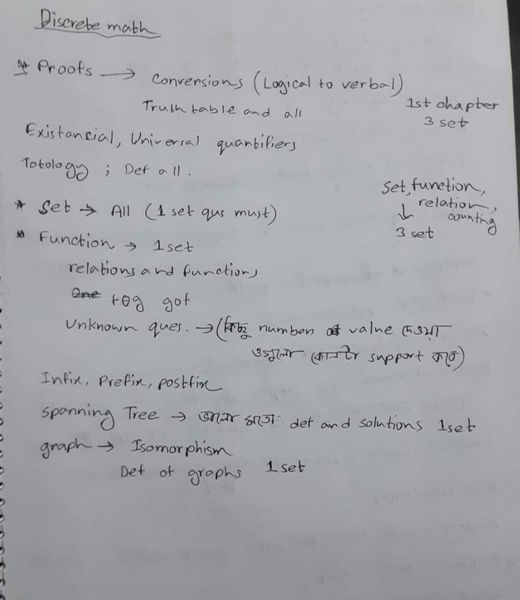 Discrete math
* Proofs → Conversions (Logical to verbal)
Truth table and all
1st chapter
3 set
Existancial, Universal quantifiers
Totology ; Def all.
* Set → All (1 set qus must)
Set, function,
relation,
counting
↓
3 set
* Function → 1 set
relations and functions
got
Unknown ques. → (কিছু number value দেওয়া
ওগুলো কোনটা support করে)
Infix, Prefix, postfix
spanning Tree → ভালো মতো det and solutions 1 set
graph → Isomorphism
Def of graphs 1 set